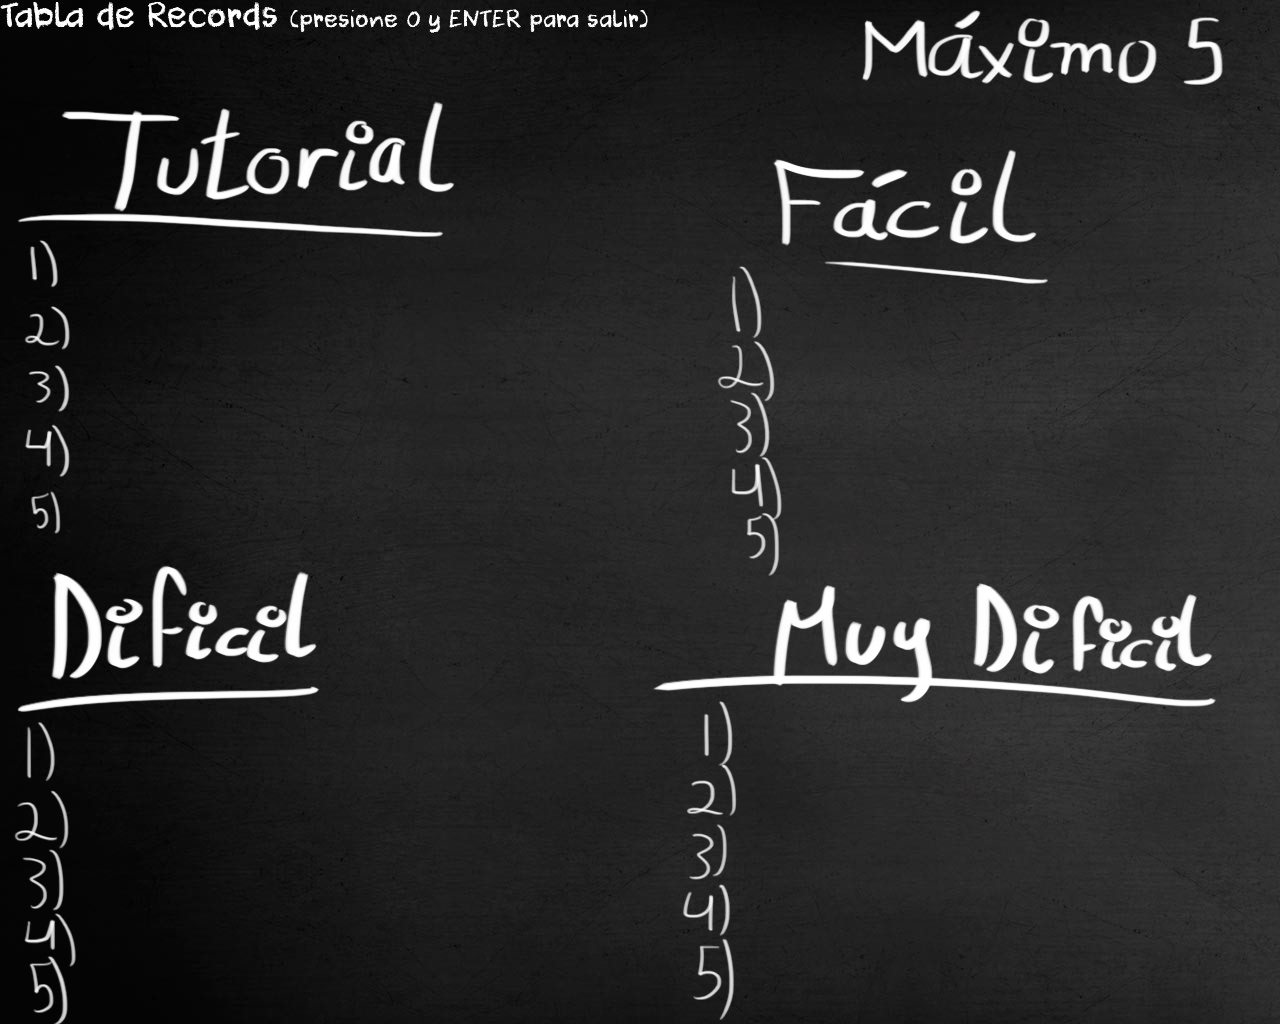 Tabla de Records (presione 0 y ENTER para salir)
Máximo 5
Tutorial
1)
2)
3)
4)
5)
Fácil
1)
2)
3)
4)
5)
Dificil
1)
2)
3)
4)
5)
Muy Dificil
1)
2)
3)
4)
5)